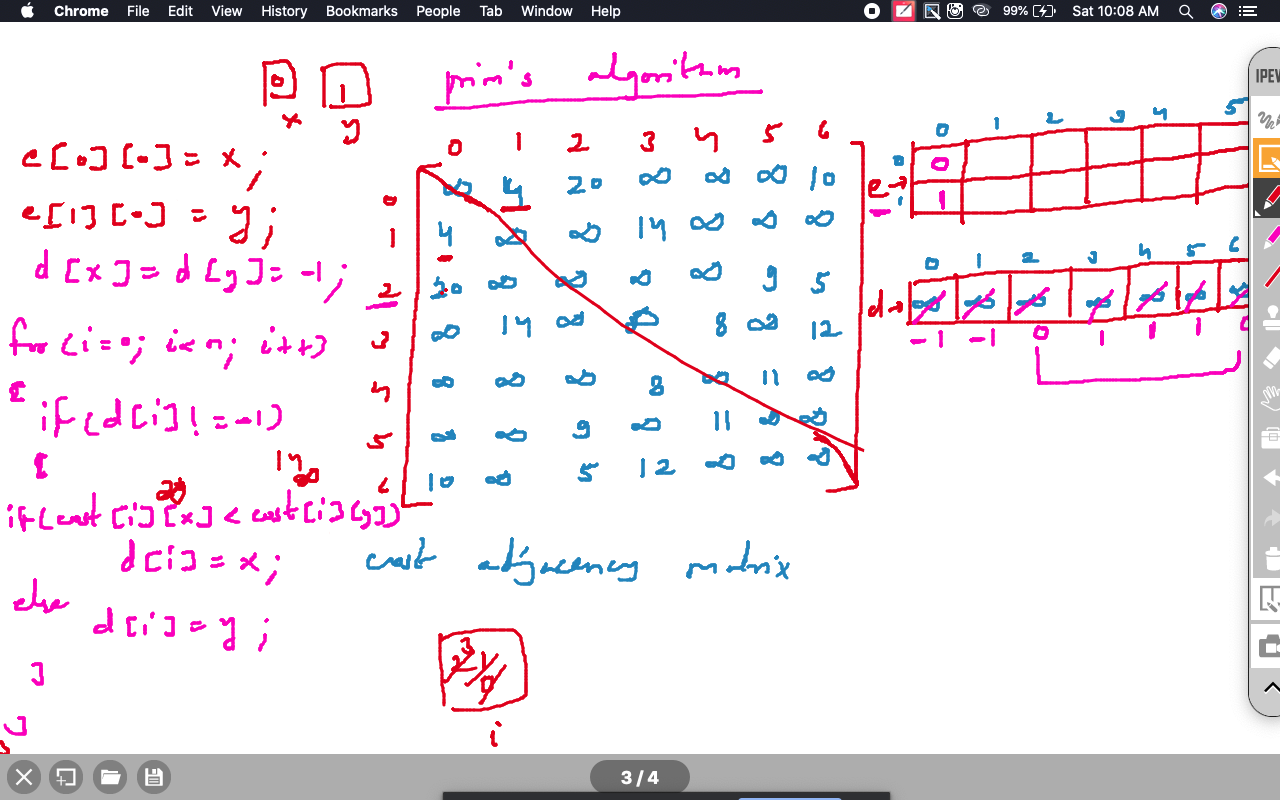 Chrome File Edit View History Bookmarks People Tab Window Help 99% Sat 10:08 AM
prim's algorithm
0 1
x y
e[0][0] = x;
e[1][0] = y;
d[x] = d[y] = -1;
for (i=0; i<n; i++)
{
if (d[i] != -1)
{
20 14 ∞
if (cost[i][x] < cost[i][y])
d[i] = x;
else
d[i] = y;
}
}
0 1 2 3 4 5 6
0 ∞ 4 20 ∞ ∞ ∞ 10
1 4 ∞ ∞ 14 ∞ ∞ ∞
2 20 ∞ ∞ ∞ ∞ 9 5
3 ∞ 14 ∞ ∞ 8 ∞ 12
4 ∞ ∞ ∞ 8 ∞ 11 ∞
5 ∞ ∞ 9 ∞ 11 ∞ ∞
6 10 ∞ 5 12 ∞ ∞ ∞
cost adjacency matrix
i
0 1 2 3 4 5
e→ 0 0
1 1
0 1 2 3 4 5 6
d→ ∞ ∞ ∞ ∞ ∞ ∞ ∞
-1 -1 0 1 1 1 0
3 / 4